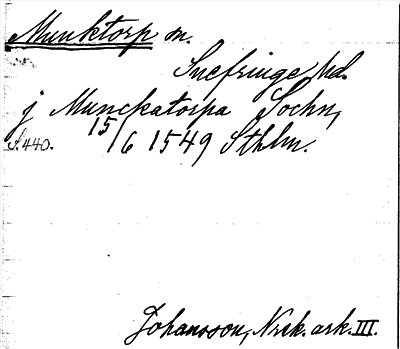 Munktorp sn.
Snefringe hd.
j Munckatorpa Sochn,
S. 440. 15/6 1549 Sthlm.
Johansson, Nrik. ark. III.